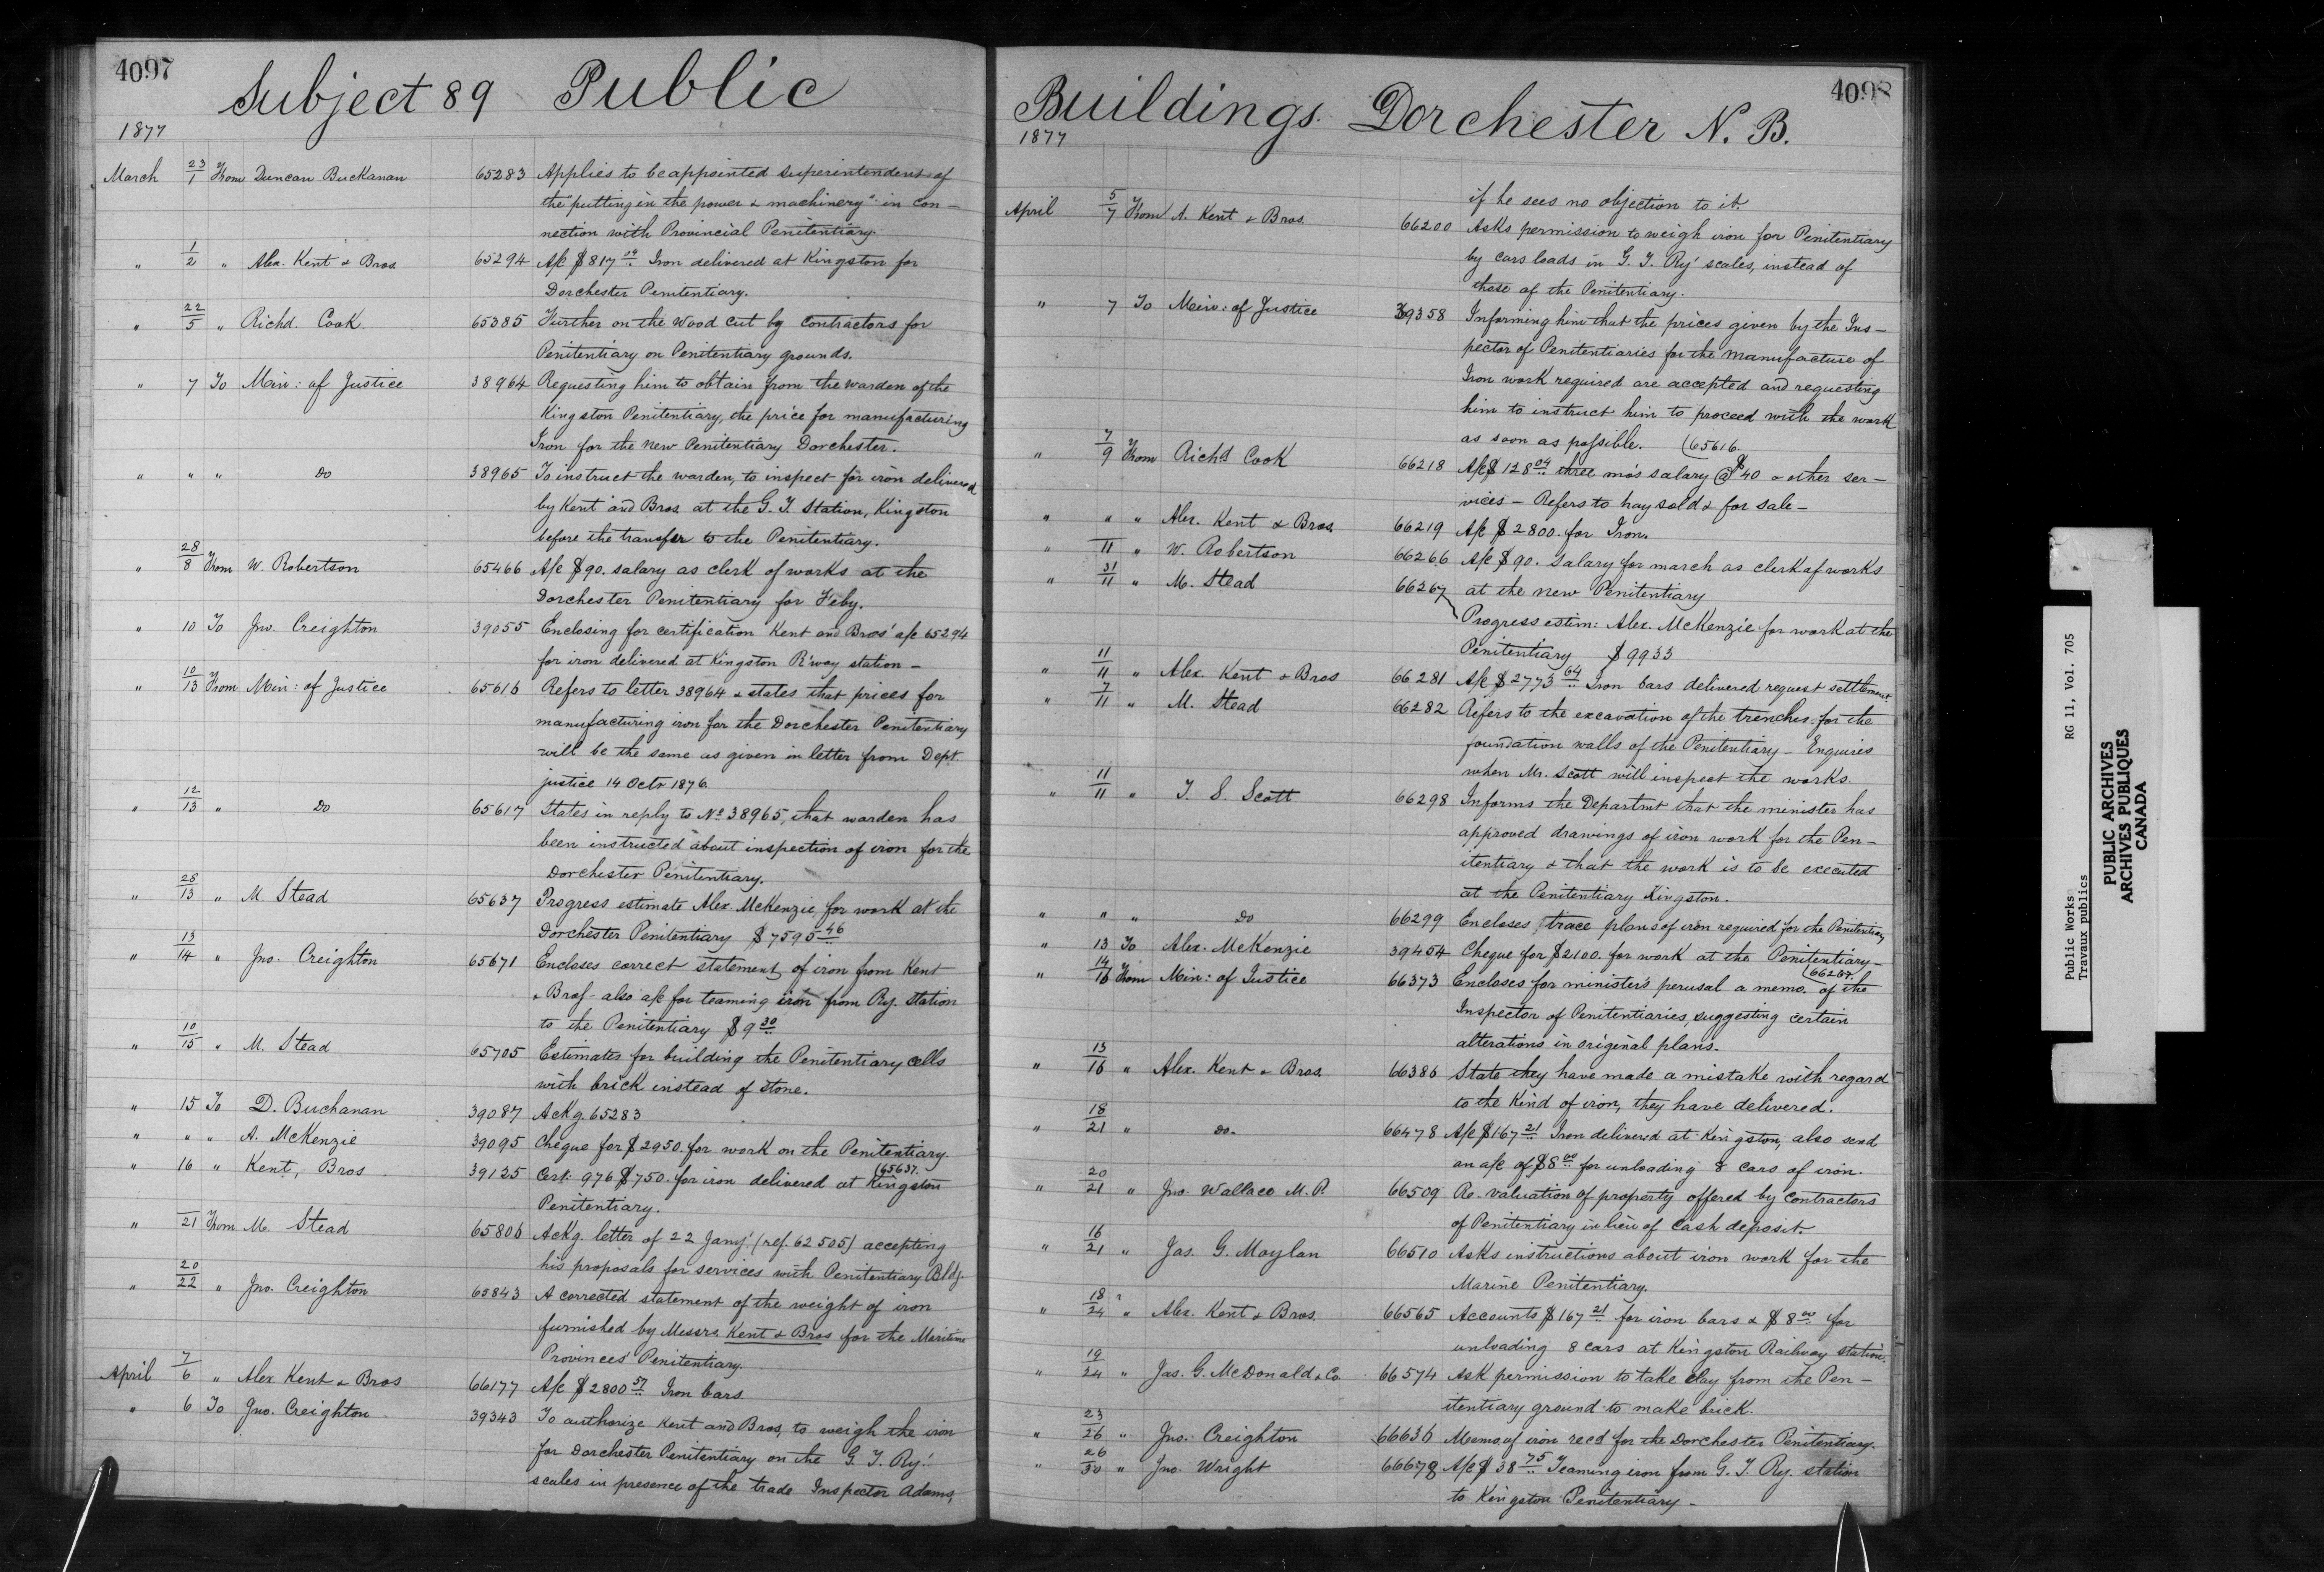 4097
Subject 89 Public
1877
March 23/1 From Duncan Buckanan 65283 Applies to be appointed superintendent of
the "putting in the power & machinery" in con-
nection with Provincial Penitentiary.
" 1/2 " Alex. Kent & Bros. 65294 A/c $817 04 Iron delivered at Kingston for
Dorchester Penitentiary.
" 22/5 " Richd. Cook 65385 Further on the wood cut by contractors for
Penitentiary on Penitentiary grounds.
" 7 To Min: of Justice 38964 Requesting him to obtain from the warden of the
Kingston Penitentiary, the price for manufacturing
Iron for the new Penitentiary Dorchester.
" " " Do 38965 To instruct the warden, to inspect for iron delivered
by Kent and Bros. at the G. T. Station, Kingston
before the transfer to the Penitentiary.
" 28/8 From W. Robertson 65466 A/c $90. salary as clerk of works at the
Dorchester Penitentiary for Feby.
" 10 To Jno. Creighton 39055 Enclosing for certification Kent and Bros' a/c 65294
for iron delivered at Kingston R'way station -
" 10/13 From Min: of Justice 65616 Refers to letter 38964 & states that prices for
manufacturing iron for the Dorchester Penitentiary
will be the same as given in letter from Dept.
justice 14 Octr 1876.
" 12/13 " Do 65617 States in reply to No. 38965, that warden has
been instructed about inspection of iron for the
Dorchester Penitentiary.
" 28/13 " M. Stead 65637 Progress estimate Alex. McKenzie, for work at the
Dorchester Penitentiary $7595 46
" 13/14 " Jno. Creighton 65671 Encloses correct statement of iron from Kent
& Bros - also a/c for teaming iron from Ry. station
to the Penitentiary $9 30
" 10/15 " M. Stead 65705 Estimates for building the Penitentiary cells
with brick instead of stone.
" 15 To D. Buchanan 39087 Ackg. 65283
" " " A. McKenzie 39095 Cheque for $2950. for work on the Penitentiary
(65637.
" 16 " Kent, Bros 39125 Cert: 976 $750. for iron delivered at Kingston
Penitentiary.
" 21 From M. Stead 65806 Ackg. letter of 22 Jany' (ref. 62505) accepting
his proposals for services with Penitentiary Bldg.
" 20/22 " Jno. Creighton 65843 A corrected statement of the weight of iron
furnished by Messrs. Kent & Bros for the Maritime
Provinces' Penitentiary.
April 7/6 " Alex Kent & Bros 66177 A/c $2800 57 Iron bars.
" 6 To Jno. Creighton 39343 To authorize Kent and Bros, to weigh the iron
for Dorchester Penitentiary on the G. T. Ry.'
scales in presence of the trade Inspector Adams,
4098
Buildings. Dorchester N. B.
1877
if he sees no objection to it.
April 5/7 From A. Kent & Bros. 66200 Asks permission to weigh iron for Penitentiary
by cars loads in G. T. Ry' scales, instead of
those of the Penitentiary.
" 7 To Min: of Justice 39358 Informing him that the prices given by the Ins-
pector of Penitentiaries for the manufacture of
Iron work required are accepted and requesting
him to instruct him to proceed with the work
as soon as possible. (65616.
" 7/9 From Richd Cook 66218 A/c $128 04 three mo's salary @ $40 & other ser-
vices - Refers to hay sold & for sale -
" " " Alex. Kent & Bros. 66219 A/c $2800. for Iron.
" 11 " W. Robertson 66266 A/c $90. Salary for march as clerk of works
at the new Penitentiary
" 31/11 " M. Stead 66267 Progress estim: Alex. McKenzie for work at the
Penitentiary $9933
" 11/11 " Alex. Kent & Bros 66281 A/c $2773 64 Iron bars delivered request settlement.
" 7/11 " M. Stead 66282 Refers to the excavation of the trenches for the
foundation walls of the Penitentiary - Enquires
when Mr. Scott will inspect the works.
" 11/11 " T. S. Scott 66298 Informs the Departmt that the minister has
approved drawings of iron work for the Pen-
itentiary & that the work is to be executed
at the Penitentiary Kingston.
" " " Do 66299 Encloses trace plans of iron required for the Penitentiary
" 13 To Alex. McKenzie 39454 Cheque for $2100. for work at the Penitentiary -
(66287.
" 14/16 From Min: of Justice 66373 Encloses for minister's perusal a memo. of the
Inspector of Penitentiaries, suggesting certain
alterations in original plans.
" 13/16 " Alex. Kent & Bros. 66386 State they have made a mistake with regard
to the kind of iron, they have delivered.
" 18/21 " do. 66478 A/c $167 21 Iron delivered at Kingston, also send
an a/c of $8 00 for unloading 8 cars of iron.
" 20/21 " Jno. Wallace M. P. 66509 Re. valuation of property offered by contractors
of Penitentiary in lieu of cash deposit.
" 16/21 " Jas. G. Moylan 66510 Asks instructions about iron work for the
Marine Penitentiary.
" 18/24 " Alex. Kent & Bros. 66565 Accounts $167 21 for iron bars & $8 00 for
unloading 8 cars at Kingston Railway station.
" 19/24 " Jas. G. McDonald & Co. 66574 Ask permission to take clay from the Pen-
itentiary ground to make brick.
" 23/26 " Jno. Creighton 66636 Memo. of iron recd for the Dorchester Penitentiary.
" 26/30 " Jno. Wright 66678 A/c $38 75 Teaming iron from G. T. Ry. station
to Kingston Penitentiary -
Public Works RG 11, Vol. 705
Travaux publics
PUBLIC ARCHIVES
ARCHIVES PUBLIQUES
CANADA